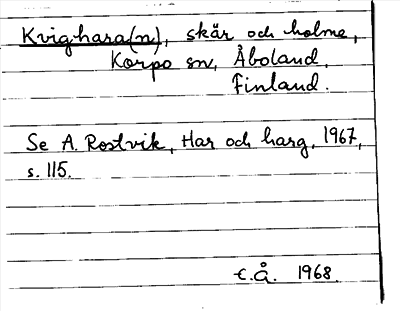 Kvighara(n), skär och holme,
Korpo sn, Åboland,
Finland.
Se A. Rostvik, Har och harg, 1967,
s. 115.
E.Å. 1968.